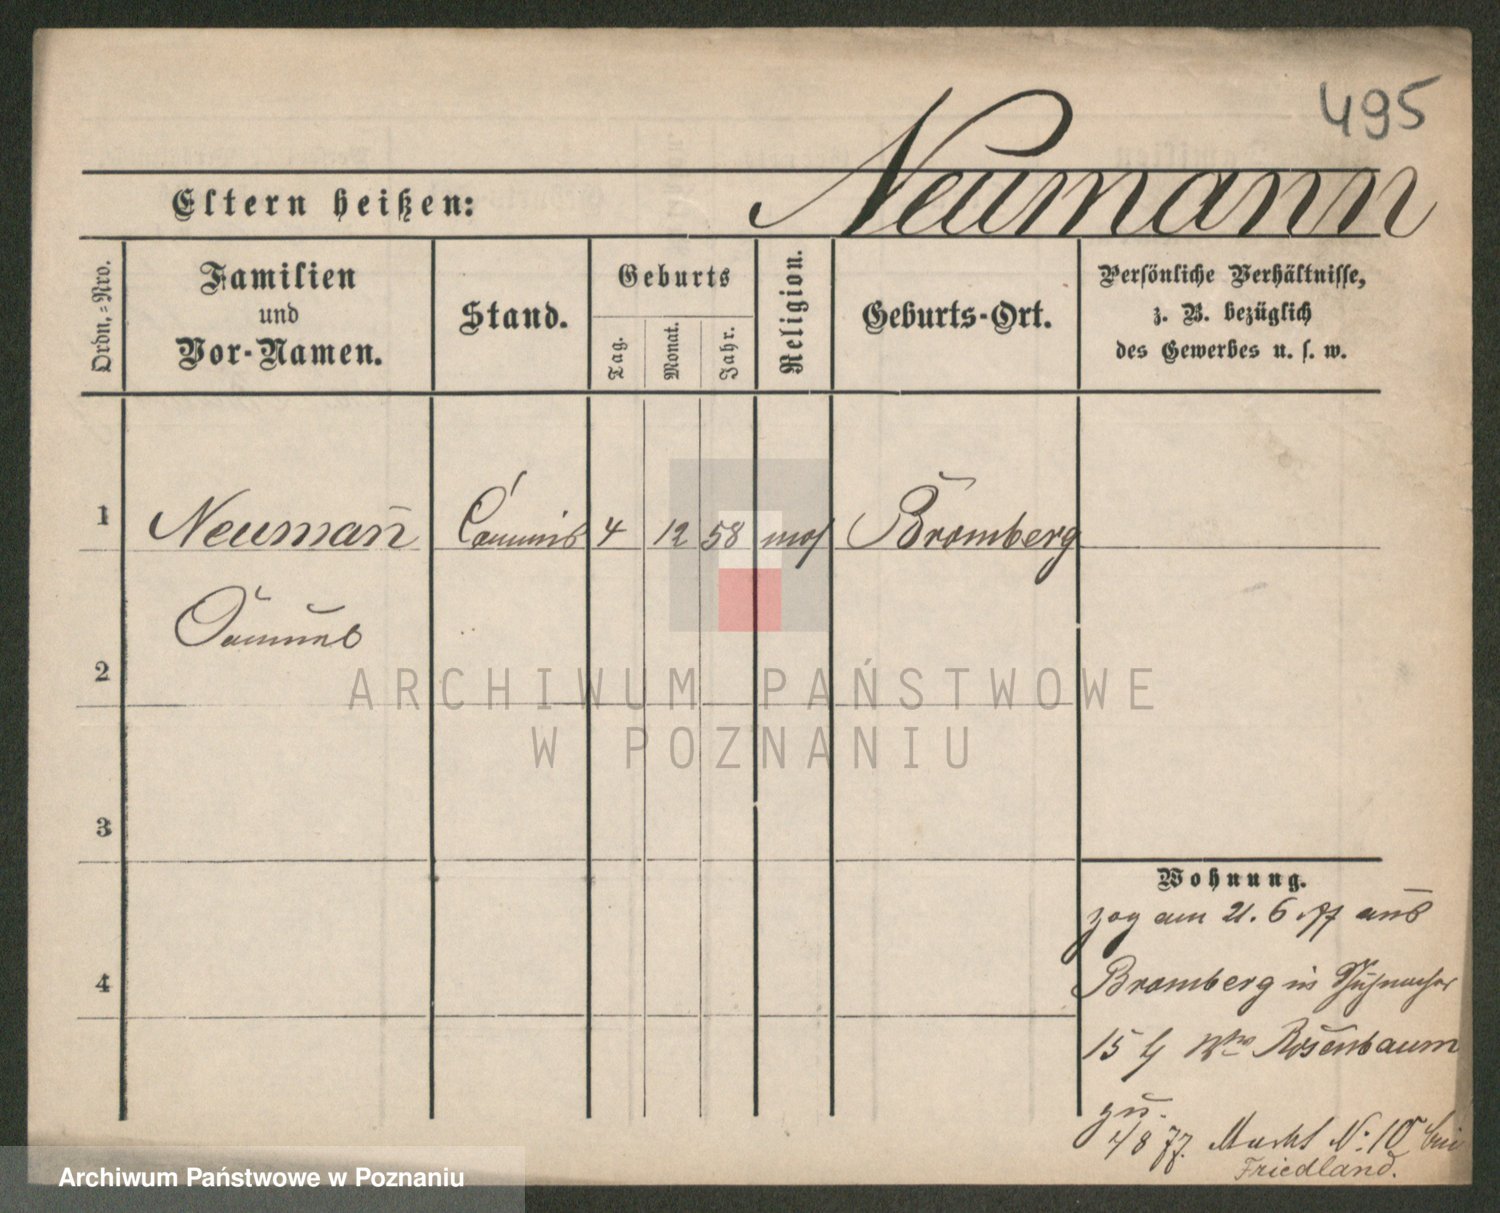 495
Neumann
Eltern heißen:
Ordn.-Nro.
Familien
und
Vor-Namen.
Stand.
Geburts
Tag.
Monat.
Jahr.
Religion.
Geburts-Ort.
Persönliche Verhältnisse,
z. B. bezüglich
des Gewerbes u. s. w.
1 Neumañ Commis 4 12 58 mos Bromberg
2
3
4
ARCHIWUM PAŃSTWOWE
W POZNANIU
Wohnung.
zog am 21. 6 77 aus
Bromberg in
15 Rosenbaum
zu.
4/8 77. Markt No: 10 bei
Friedland.
Archiwum Państwowe w Poznaniu